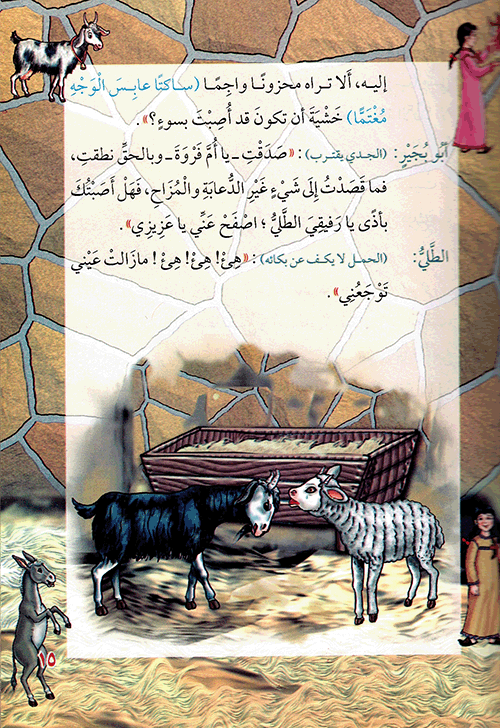 إليه، أَلا تراه محزونًا واجِمًا (ساكتًا عابِسَ الْوَجْهِ
مُغْتَمًّا) خَشْيَةَ أن تكونَ قد أُصِبْتَ بسوءٍ؟».
أبُو بُجَيْرٍ: (الجدي يقترب): «صَدَقْتِ ـ يا أُمَّ فَرْوَةَ ـ وبالحقِّ نطقتِ،
فما قَصَدْتُ إِلَى شَيْءٍ غَيْرِ الدُّعابَةِ والْمُزَاحِ، فَهَلْ أَصَبْتُكَ
بأذًى يا رَفيقِيَ الطَّلِيُّ؛ اصْفَحْ عَنِّي يا عَزِيزِي».
الطَّلِيُّ: (الحمل لا يكف عن بكائه): «هِئْ! هِئْ! هِئْ! مازالتْ عَيْنِي
تَوْجَعُنِي».
١٥